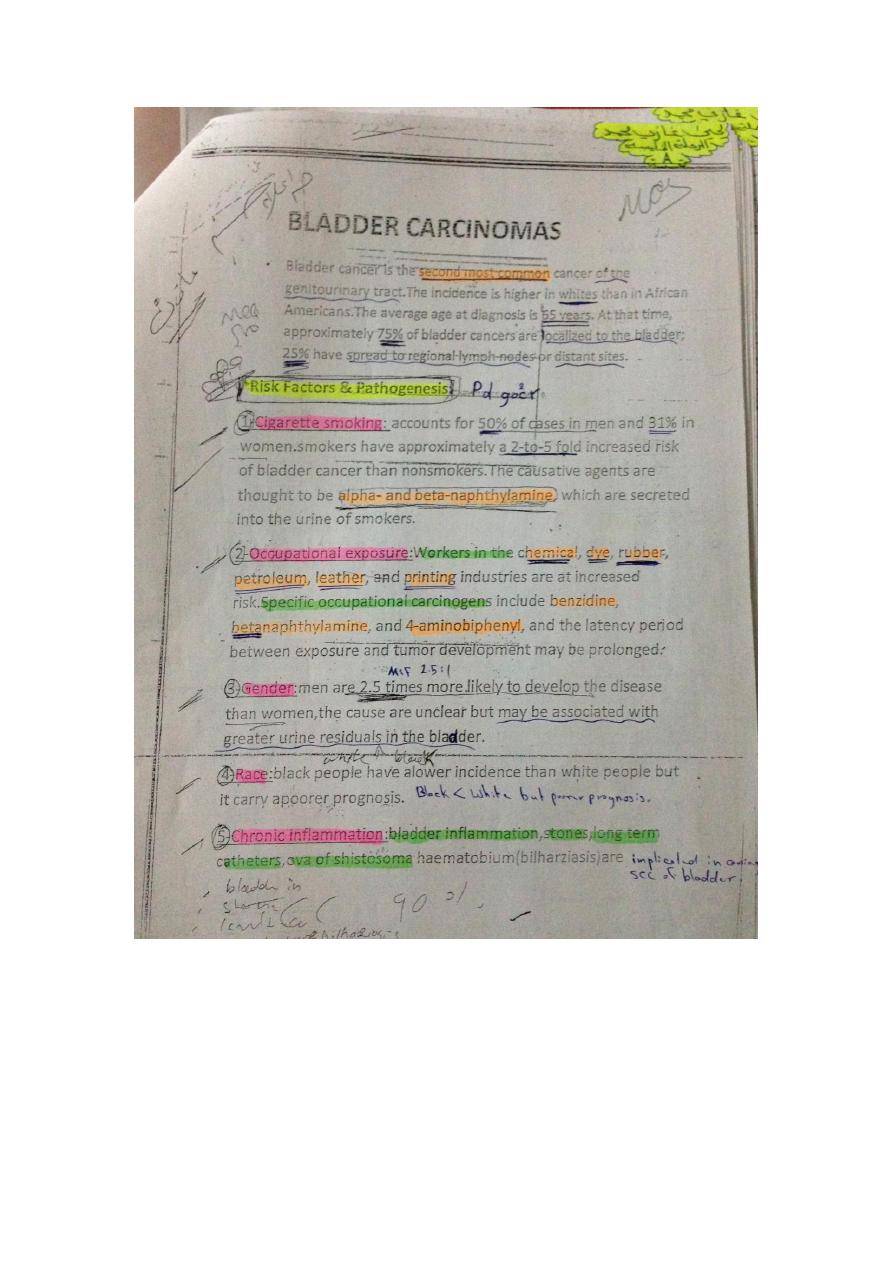 BLADDER CARCINOMAS
Bladder cancer is the second most common cancer of the
genitourinary tract.The incidence is higher in whites than in African
Americans.The average age at diagnosis is 65 years. At that time,
approximately 75% of bladder cancers are localized to the bladder;
25% have spread to regional lymph nodes or distant sites.
Risk Factors & Pathogenesis
1-Cigarette smoking: accounts for 50% of cases in men and 31% in
women.smokers have approximately a 2-to-5 fold increased risk
of bladder cancer than nonsmokers.The causative agents are
thought to be alpha- and beta-naphthylamine, which are secreted
into the urine of smokers.
2-Occupational exposure:Workers in the chemical, dye, rubber,
petroleum, leather, and printing industries are at increased
risk.Specific occupational carcinogens include benzidine,
betanaphthylamine, and 4-aminobiphenyl, and the latency period
between exposure and tumor development may be prolonged.
M:F 2.5:1
3-Gender:men are 2.5 times more likely to develop the disease
than women,the cause are unclear but may be associated with
greater urine residuals in the bladder.
white black
4-Race:black people have alower incidence than white people but
it carry apoorer prognosis. Black < white but poorer prognosis.
5-Chronic inflammation:bladder inflammation,stones,long term
catheters,ova of shistosoma haematobium(bilharziasis)are implicated in
SCC of bladder.
bladder in
90 %